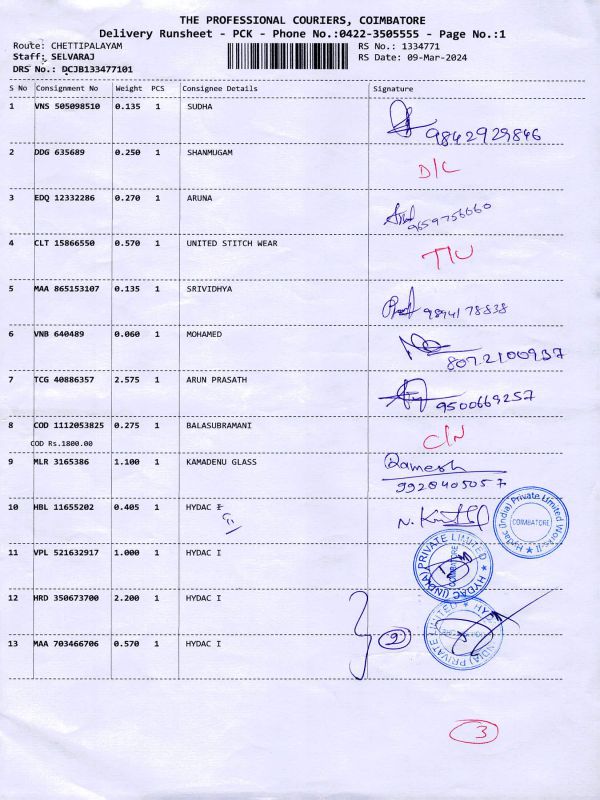 THE PROFESSIONAL COURIERS, COIMBATORE
Delivery Runsheet - PCK - Phone No.:0422-3505555 - Page No.:1
Route: CHETTIPALAYAM RS No.: 1334771
Staff: SELVARAJ RS Date: 09-Mar-2024
DRS No.: DCJB133477101
S No Consignment No Weight PCS Consignee Details Signature
1 VNS 505098510 0.135 1 SUDHA
9842929846
2 DDG 635689 0.250 1 SHANMUGAM
D/L
3 EDQ 12332286 0.270 1 ARUNA
9659756660
4 CLT 15866550 0.570 1 UNITED STITCH WEAR
T/U
5 MAA 865153107 0.135 1 SRIVIDHYA
9894178838
6 VNB 640489 0.060 1 MOHAMED
8072100937
7 TCG 40886357 2.575 1 ARUN PRASATH
9500669257
8 COD 1112053825 0.275 1 BALASUBRAMANI
C/N
COD Rs.1800.00
9 MLR 3165386 1.100 1 KAMADENU GLASS Ramesh
9928405057
10 HBL 11655202 0.405 1 HYDAC I
II
Hydac (India) Private Limited Works-II
COIMBATORE
11 VPL 521632917 1.000 1 HYDAC I
HYDAC (INDIA) PRIVATE LIMITED
COIMBATORE
12 HRD 350673700 2.200 1 HYDAC I
13 MAA 703466706 0.570 1 HYDAC I
9
3